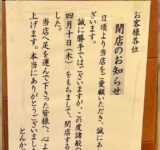 お客様各位
閉店のお知らせ
日頃より当店をご愛顧いただき、誠にあ
ざいます。
誠に勝手ではございますが、この度諸般の
四月十日（木）をもちまして閉店する
した。
当店へ足を運んで下さった皆様へ、心よ
上げます。本当にありがとうございました
とんか